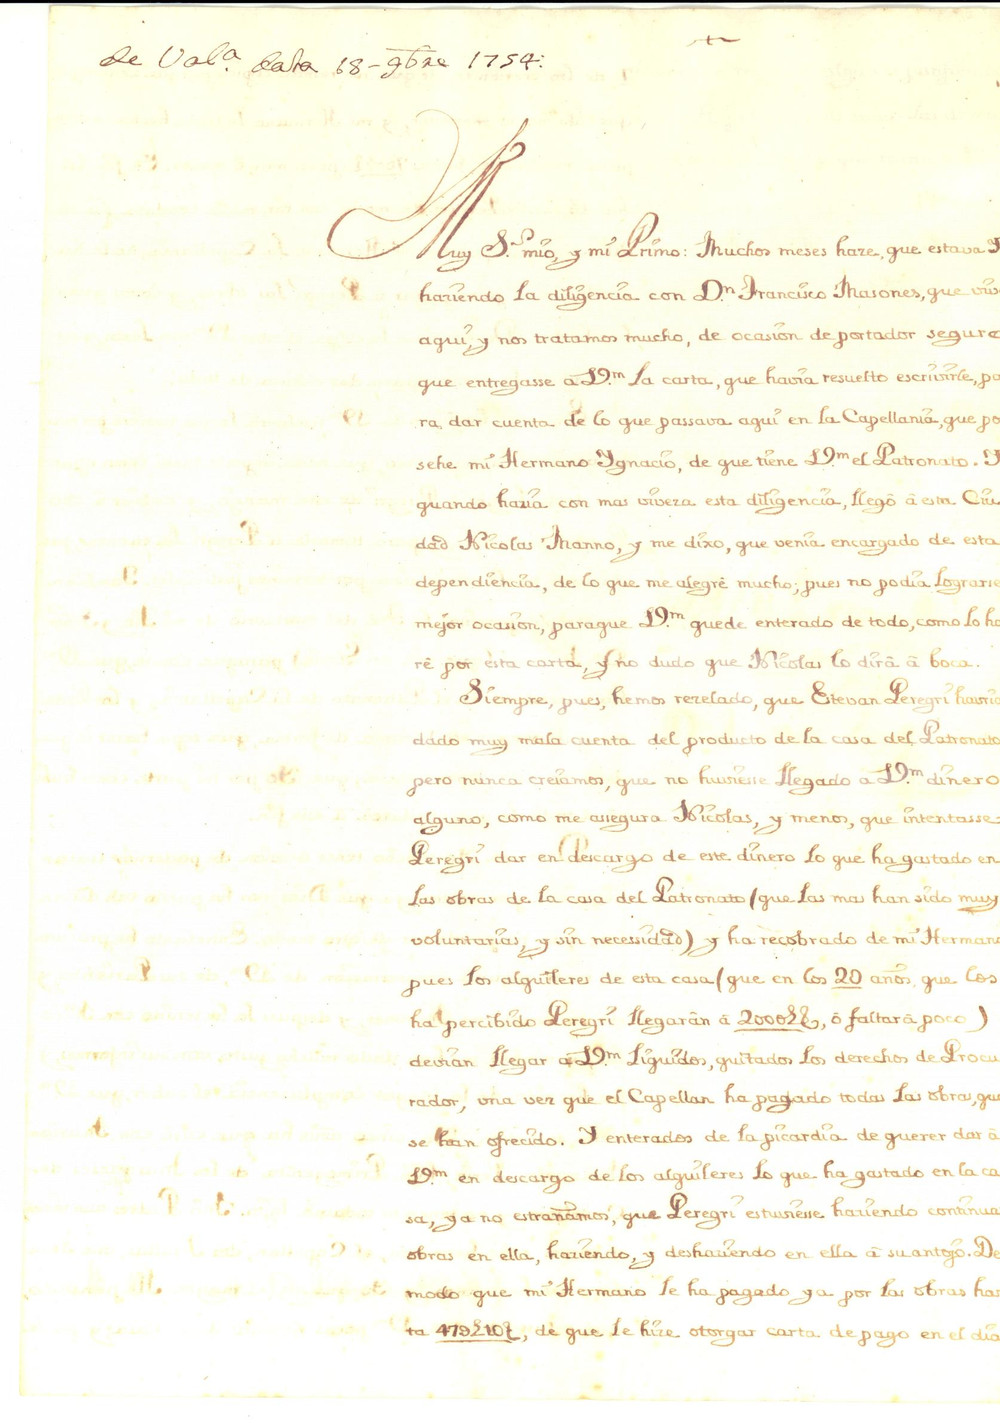 de Val.ª data 18 - 9bre 1754.
Muy S.r mio, y mi Primo: Muchos meses haze, que estava Y
haziendo la diligencia con D.n Francisco Masones, que viv
aqui, y nos tratamos mucho, de ocasion de portador seguro
que entregasse â V.m la carta, que havia resuelto escrivirle, pa
ra, dar cuenta de lo que passava aqui en la Capellania, que po
sehe mi Hermano Ygnacio, de que tiene V.m el Patronato. Y
quando hazia con mas viveza esta diligencia, llegô â esta Ciu
dad Nicolas Manno, y me dixo, que venia encargado de esta
dependiencia, de lo que me alegrê mucho; pues no podia lograrse
mejor ocasion, paraque V.m quede enterado de todo, como lo ha
rê por esta carta, y no dudo que Nicolas lo dirâ â boca.
Siempre, pues, hemos rezelado, que Estevan Peregri havria
dado muy mala cuenta del producto de la casa del Patronato
pero nunca creiamos, que no huviesse llegado a V.m dinero
alguno, como me assegura Nicolas, y menos, que intentasse
Peregri dar en descargo de este dinero lo que ha gastado en
las obras de la casa del Patronato (que las mas han sido muy
voluntarias, y sin necessidad) y ha recobrado de mi Hermano
pues los alquileres de esta casa (que en los 20 años, que los
ha percibido Peregri llegarân â 2000££, ô faltarâ poco)
devian llegar â V.m liquidos, quitados los derechos de Procu
rador, una vez que el Capellan ha pagado todas las obras, que
se han ofrecido. Y enterados de la picardia de querer dar â
V.m en descargo de los alquileres lo que ha gastado en la ca
sa, ya no estrañamos, que Peregri estuviesse haziendo continua
obras en ella, haziendo, y deshaziendo en ella â su antojo. De
modo que mi Hermano le ha pagado ya por las obras has
ta 479£10£, de que le hize otorgar carta de pago en el dia